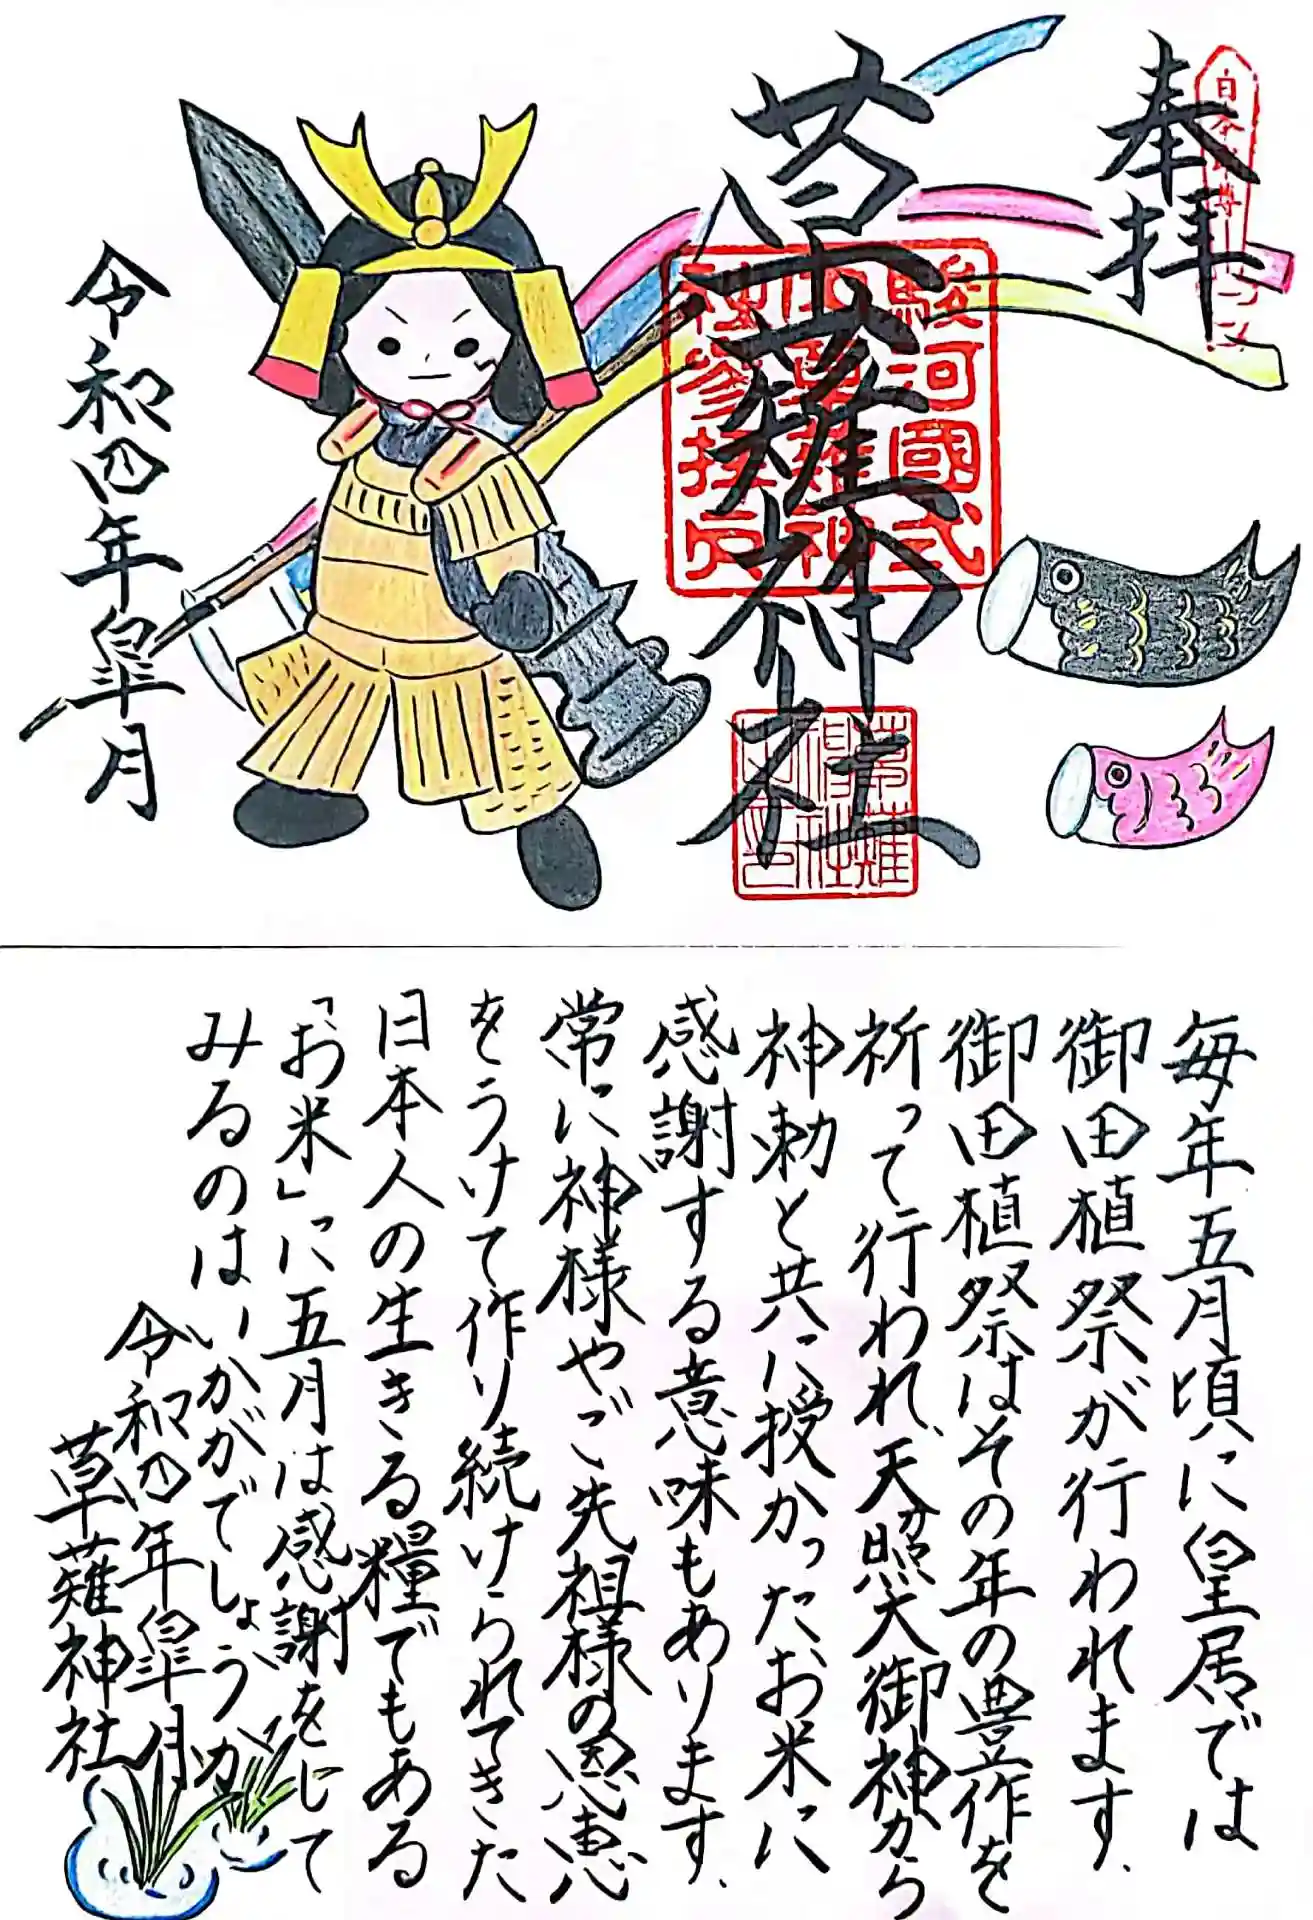 奉拝
草薙神社
駿河國式
令和四年皐月
毎年五月頃に皇居では
御田植祭が行われます。
御田植祭はその年の豊作を
祈って行われ、天照大御神から
神勅と共に授かったお米に
感謝する意味もあります。
常に神様やご先祖様の恩恵
をうけて作り続けられてきた
日本人の生きる糧でもある
「お米」に五月は感謝をして
みるのはいかがでしょうか。
令和四年皐月
草薙神社